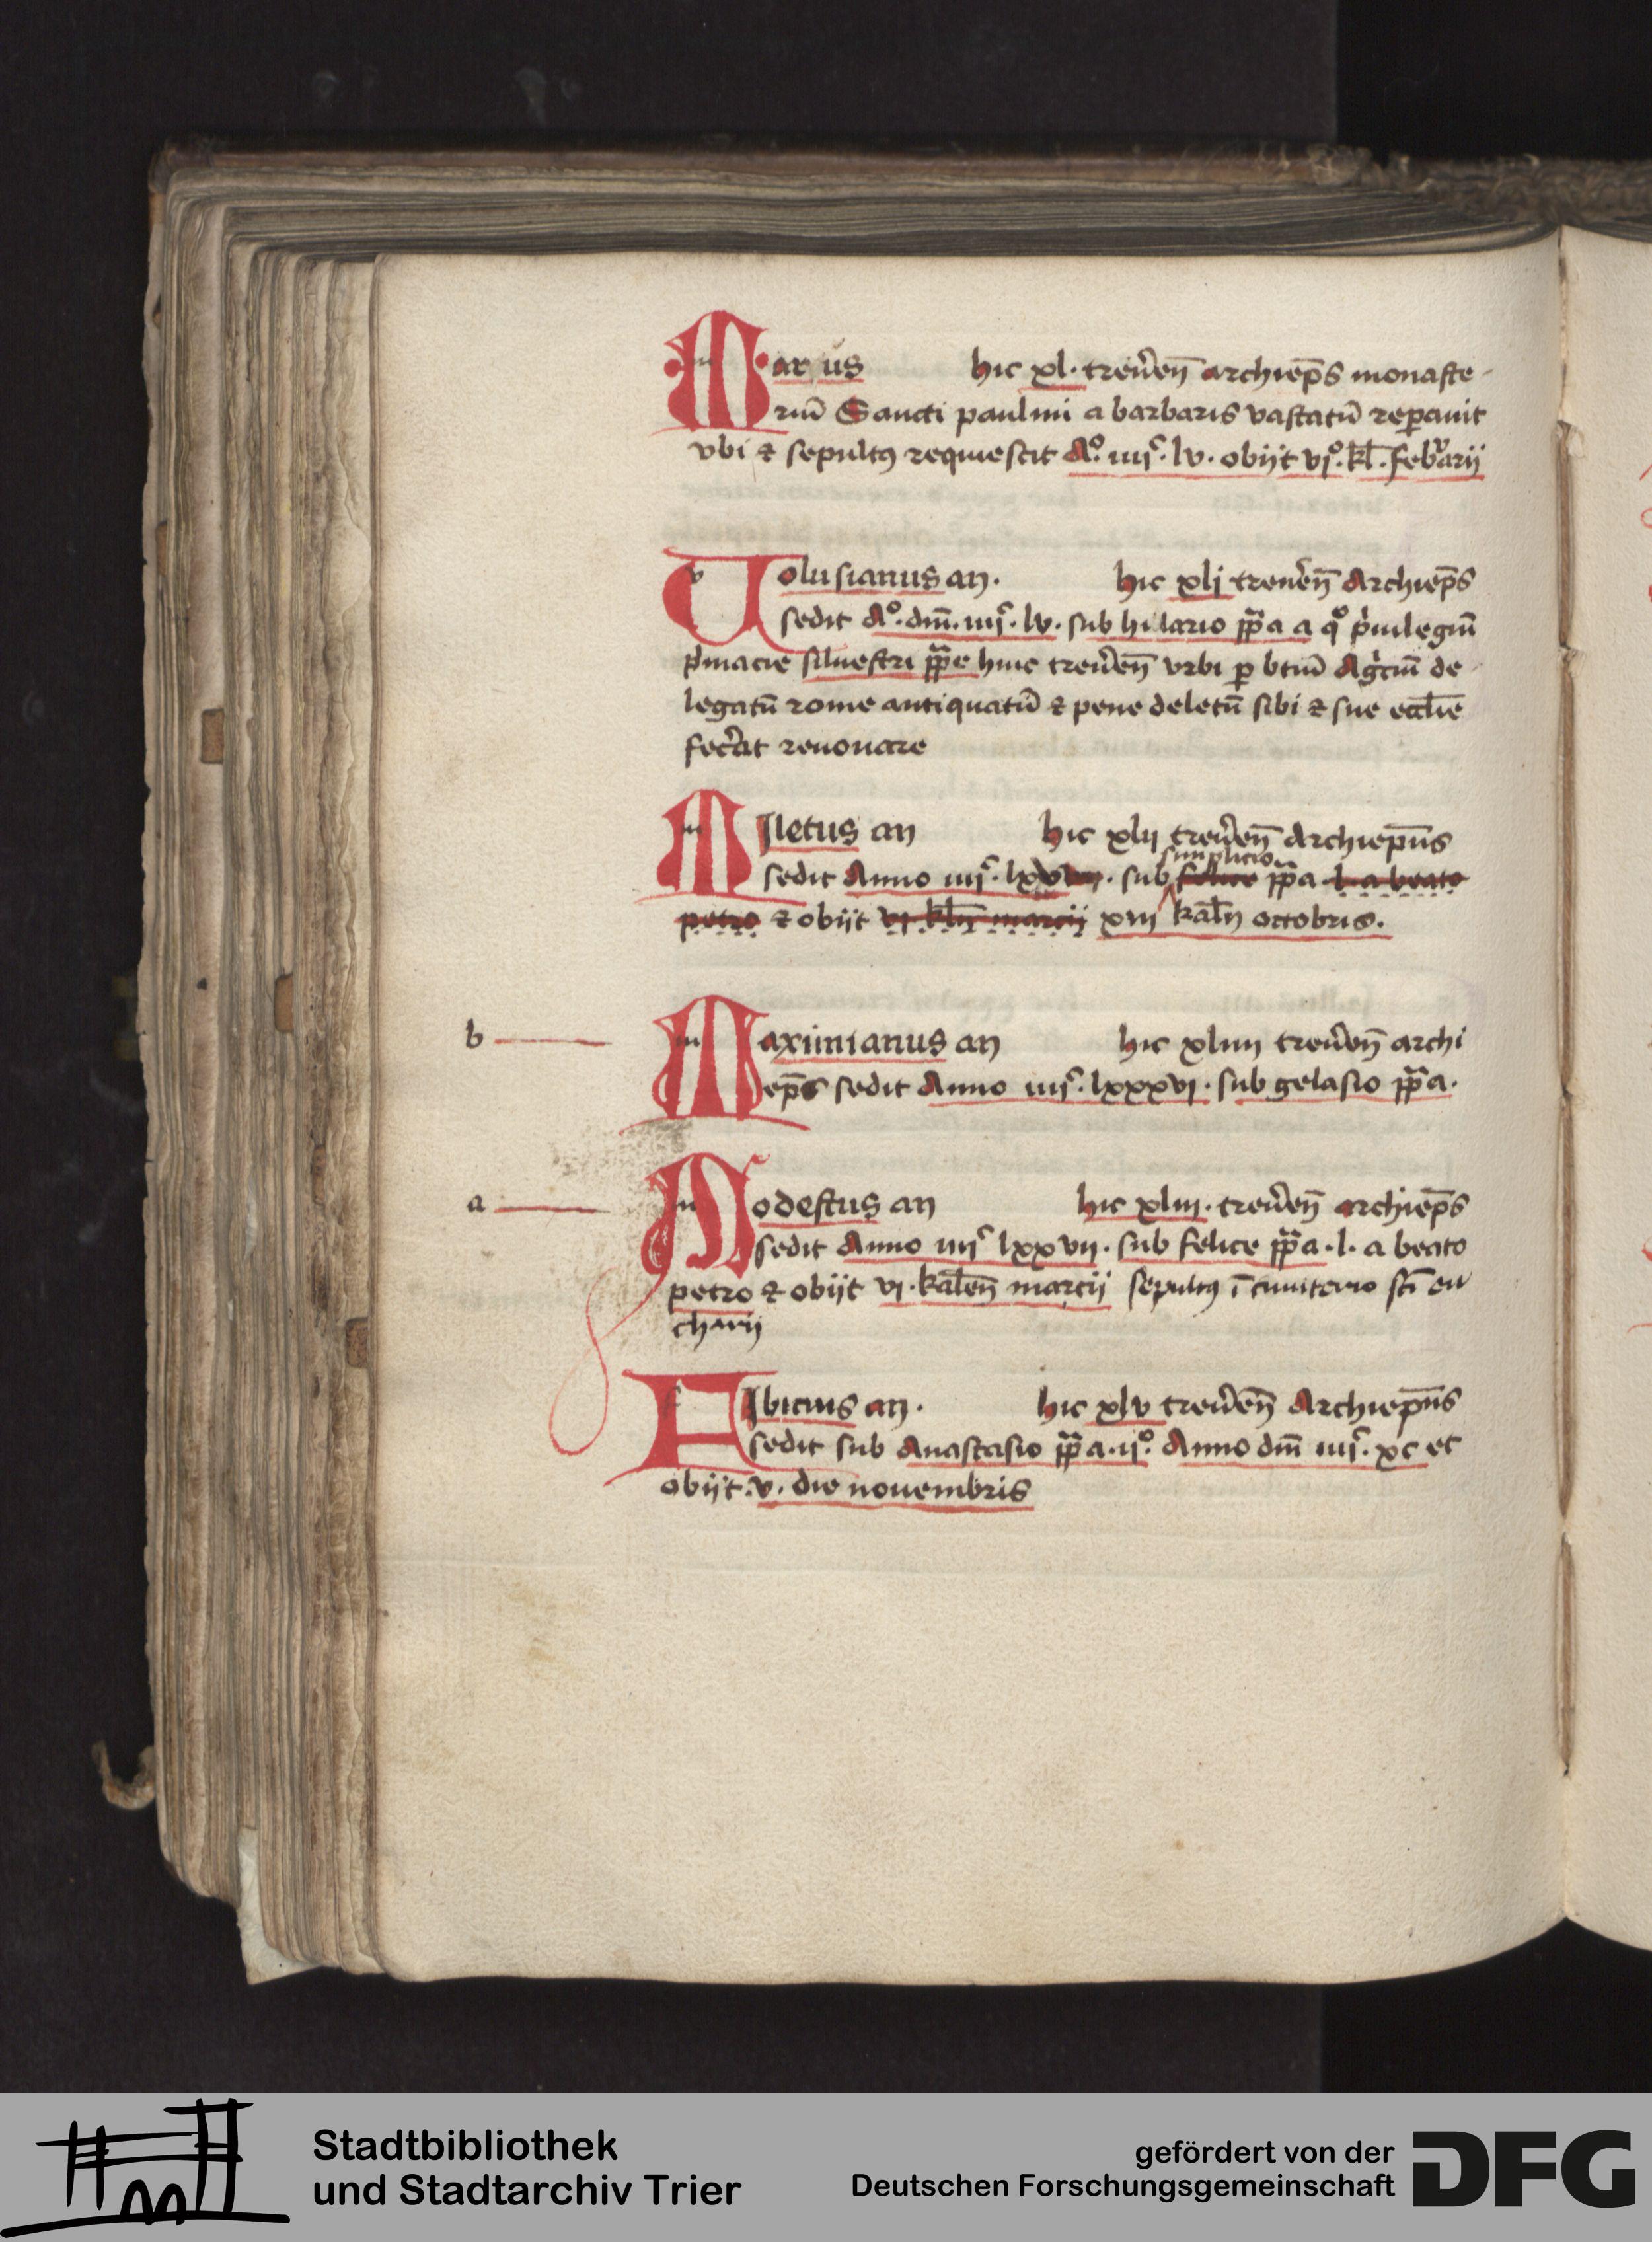 Marus hic xl. treueren̄ archiep̄s monaste-
riū Sancti paulini a barbaris vastatū reꝑauit
vbi ⁊ sepultꝰ requiescit Aº. iiijᶜ. lv. obijt vjº. kl̄. febʳarij
Volusianus an. hic xlj treueren̄ Archiep̄s
sedit Aº. dm̄. iiijᶜ. lv. sub hilario pp̄a a qº pⁱuilegiū
pⁱmacie siluestri pp̄e huic treueren̄ vrbi ꝑ btm̄ Agⁱciū de-
legatū rome antiquatū ⁊ pene deletū sibi ⁊ sue eccl̄ie
fecerat renouare
MIletus an hic xlij treueren̄ Archiep̄us
simplicio
sedit Anno iiijᶜ. lxxvij. sub felice pp̄a .l. a beato
petro ⁊ obijt vj kln̄ marcij xiij kal̄n octobris.
b Maximianus an hic xliiij treueren̄ archi
ep̄s sedit Anno iiijᶜ. lxxxvj. sub gelasio pp̄a.
a Modestus an hic xliij. treueren̄ archiep̄s
sedit Anno iiijᶜ lxxvij. sub felice pp̄a .l. a beato
petro ⁊ obijt vj. kalen̄ marcij sepultꝰ ī cimiterio sc̄i eu
charij
FIbicius an. hic xlv treueren̄ Archiep̄us
sedit sub Anastasio pp̄a .ijº. Anno dm̄ iiijᶜ. xc et
obijt .v. die nouembris
Stadtbibliothek
und Stadtarchiv Trier
gefördert von der
Deutschen Forschungsgemeinschaft
DFG